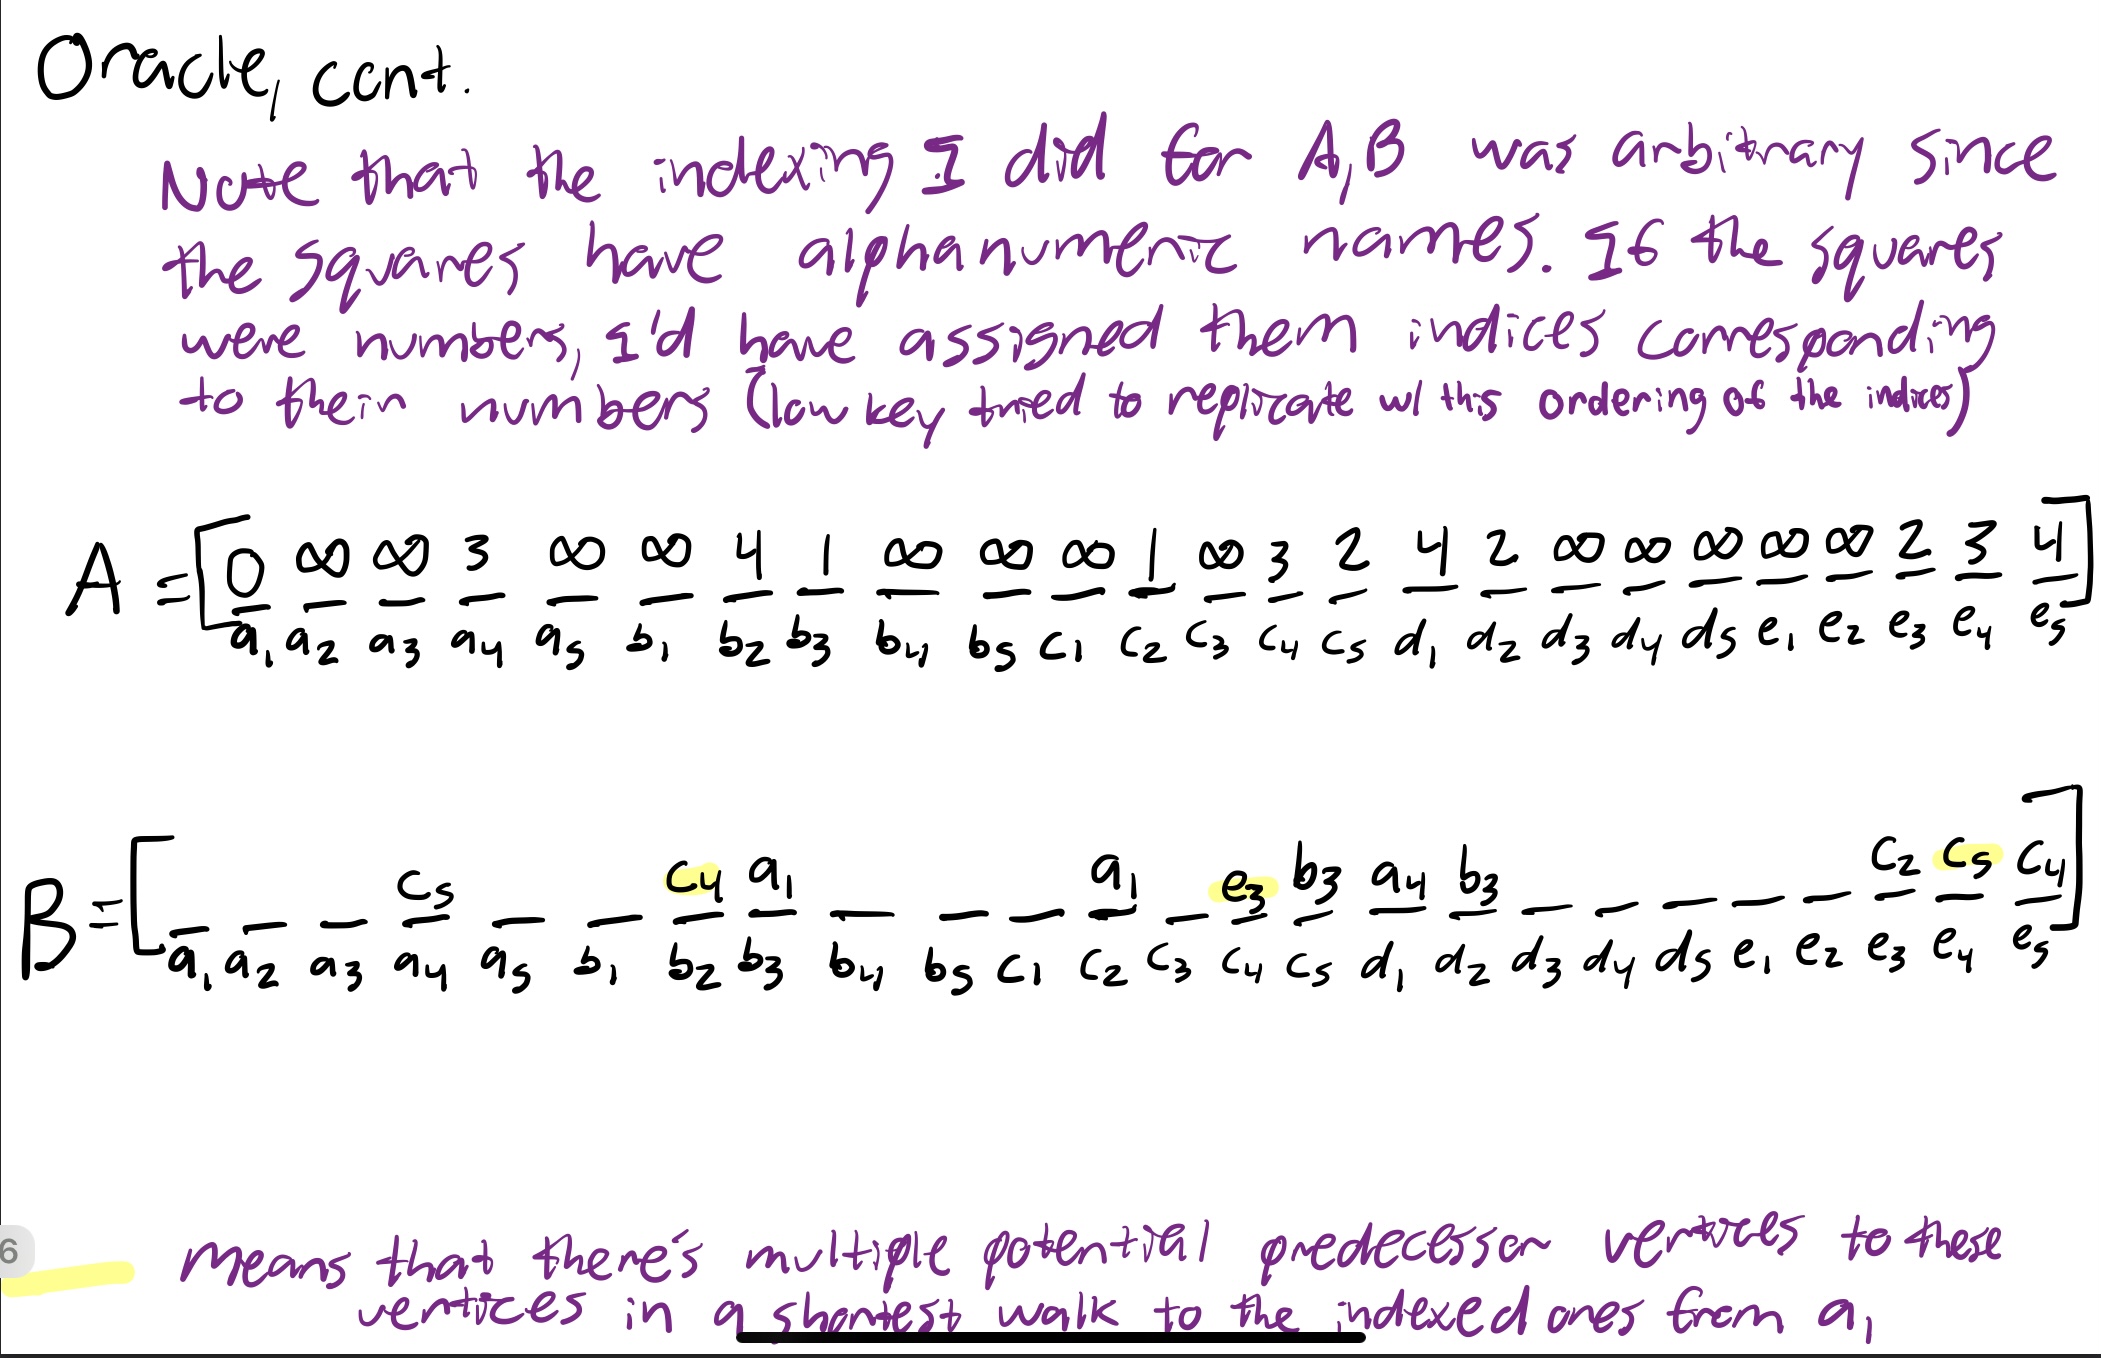 Oracle, cont.
Note that the indexing I did for A,B was arbitrary since
the squares have alphanumeric names. If the squares
were numbers, I'd have assigned them indices corresponding
to their numbers (low key tried to replicate w/ this ordering of the indices)
A = [0 ∞ ∞ 3 ∞ ∞ 4 1 ∞ ∞ ∞ 1 ∞ 3 2 4 2 ∞ ∞ ∞ ∞ ∞ 2 3 4]
a1 a2 a3 a4 a5 b1 b2 b3 b4 b5 c1 c2 c3 c4 c5 d1 d2 d3 d4 d5 e1 e2 e3 e4 e5
B = [ _ _ _ c5 _ _ c4 a1 _ _ _ a1 _ e3 b3 a4 b3 _ _ _ _ _ c2 c5 c4]
a1 a2 a3 a4 a5 b1 b2 b3 b4 b5 c1 c2 c3 c4 c5 d1 d2 d3 d4 d5 e1 e2 e3 e4 e5
6
means that there's multiple potential predecessor vertices to these
vertices in a shortest walk to the indexed ones from a1